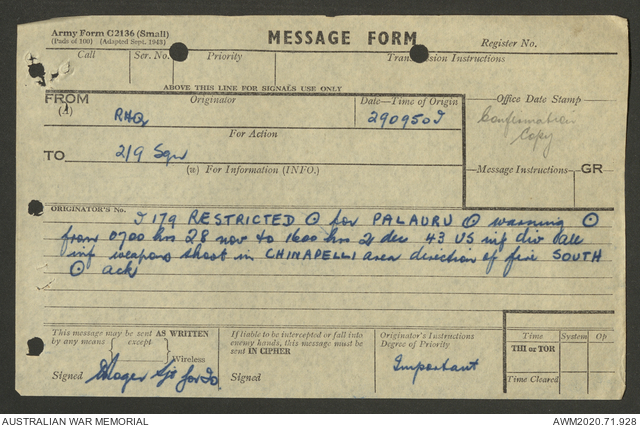 Army Form C2136 (Small)
(Pads of 100) (Adapted Sept. 1943)
MESSAGE FORM
Register No.
Call Ser. No. Priority Transmission Instructions
ABOVE THIS LINE FOR SIGNALS USE ONLY
FROM
(A)
Originator
Date—Time of Origin
Office Date Stamp
RHQ
290950I
Confirmation
Copy
For Action
TO
2/9 Sqn
(w) For Information (INFO.)
Message Instructions GR
ORIGINATOR'S No.
I 179 RESTRICTED ⊙ for PALAURU ⊙ warning ⊙
from 0700 hrs 28 nov to 1600 hrs 2 dec 43 US inf div all
inf weapons shoot in CHINAPELLI area direction of fire SOUTH
⊙ ack
This message may be sent AS WRITTEN
by any means { except }
Wireless
Signed
If liable to be intercepted or fall into
enemy hands, this message must be
sent IN CIPHER
Signed
Originator's Instructions
Degree of Priority
Important
Time System Op
THI or TOR
Time Cleared
Sjt for Io
AUSTRALIAN WAR MEMORIAL
AWM2020.71.928